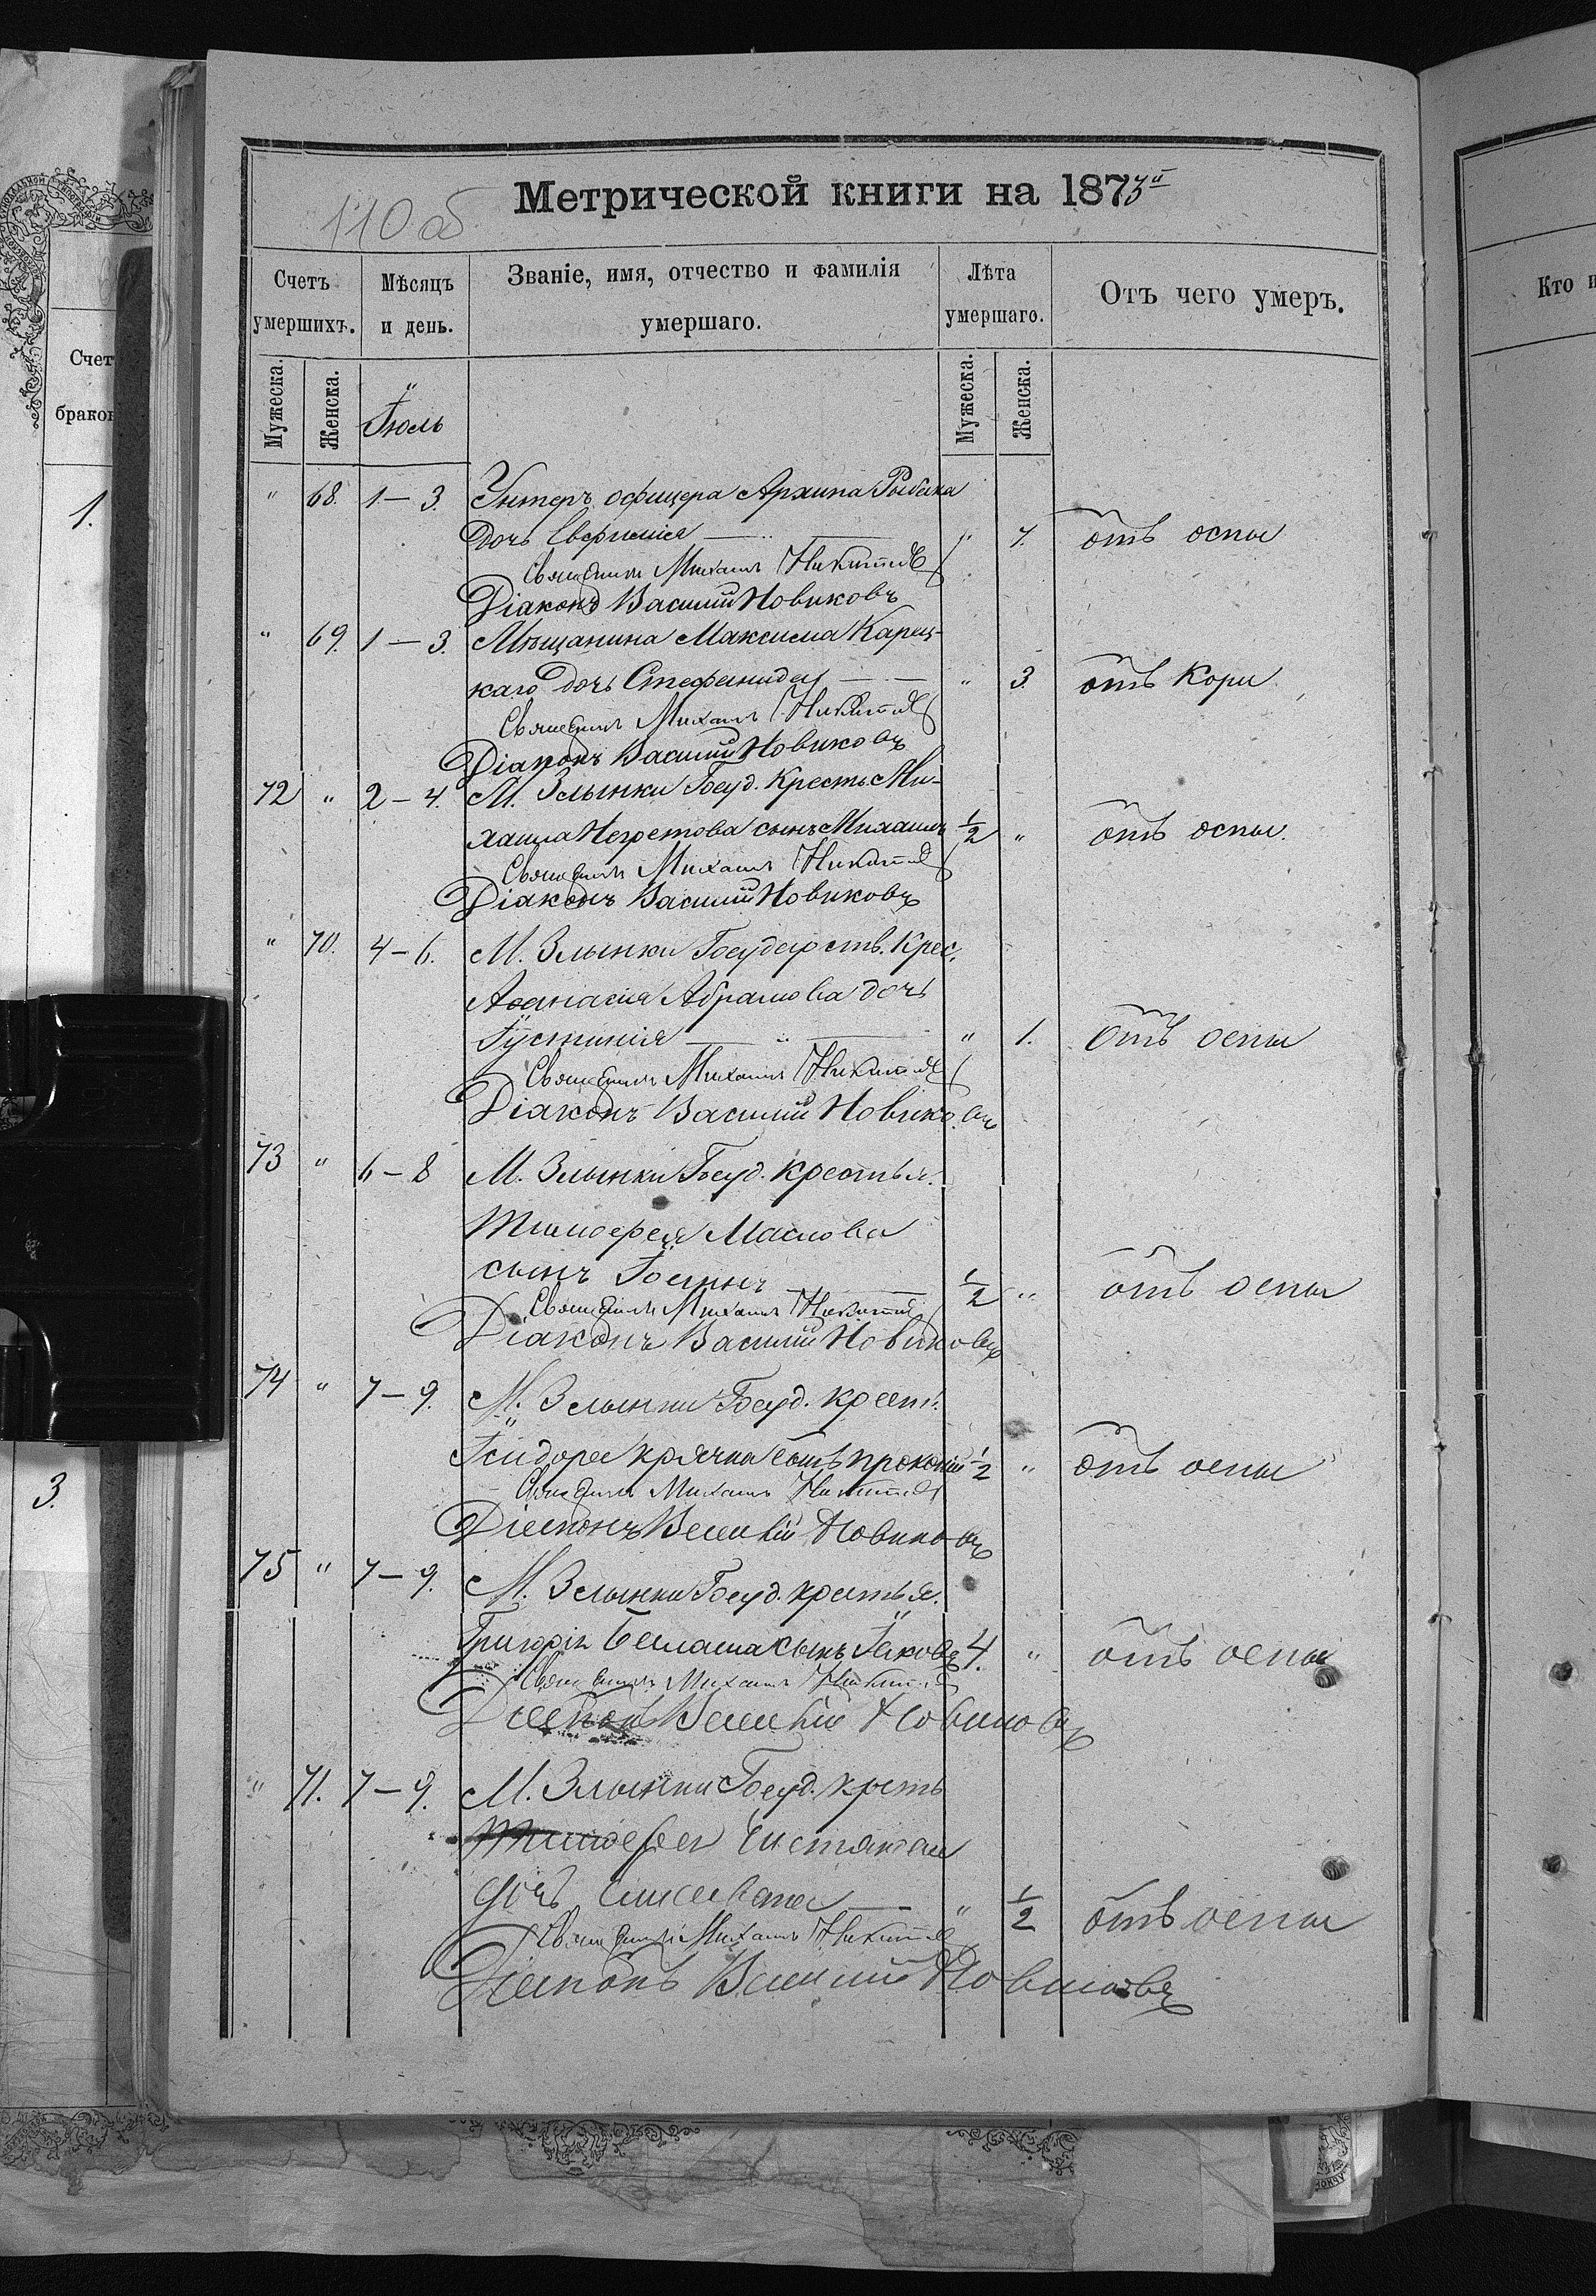 Метрической книги на 1873й
110 об
Счетъ умершихъ.
Мѣсяцъ и день.
Званіе, имя, отчество и фамилія умершаго.
Лѣта умершаго.
Отъ чего умеръ.
Мужеска. Женска. Іюль Мужеска. Женска.
" 68. 1–3. Унтеръ офицера Архипа Рыбака
дочь Евфимія " 7. отъ оспы
Священникъ Михаилъ Никитинъ
Діаконъ Василій Новиковъ
" 69. 1–3. Мѣщанина Максима Карец-
каго дочь Стефанида " 3. отъ кори
Священникъ Михаилъ Никитинъ
Діаконъ Василій Новиковъ
72 " 2–4. М. Злынки Госуд. Кресть. Ми-
хаила Негретова сынъ Михаилъ 1/2 " отъ оспы.
Священникъ Михаилъ Никитинъ
Діаконъ Василій Новиковъ
" 70. 4–6. М. Злынки Государств. Крес.
Аѳанасія Абрамова дочь
Іустинія " 1. отъ оспы
Священникъ Михаилъ Никитинъ
Діаконъ Василій Новиковъ
73 " 6–8 М. Злынки Госуд. крестья.
Тимоѳея Маслова
сынъ 1/2 " отъ оспы
Священникъ Михаилъ Никитинъ
Діаконъ Василій Новиковъ
74 " 7–9. М. Злынки Госуд. крест.
Ісидора сынъ Прокопій 1/2 " отъ оспы
Священникъ Михаилъ Никитинъ
Діаконъ Василій Новиковъ
75 " 7–9. М. Злынки Госуд. крестья.
Григорія сынъ Іаковъ 4. " отъ оспы
Священникъ Михаилъ Никитинъ
Діаконъ Василій Новиковъ
" 71. 7–9. М. Злынки Госуд. кресть
дочь Елисавета " 1/2 отъ оспы
Священникъ Михаилъ Никитинъ
Діаконъ Василій Новиковъ
Счет
браков
1.
3.
Кто и